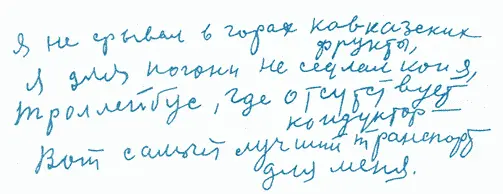 Я не срывал в горах кавказских
фрукты,
Я для погони не седлал коня,
Троллейбус, где отсутствует
кондуктор —
Вот самый лучший транспорт
для меня.